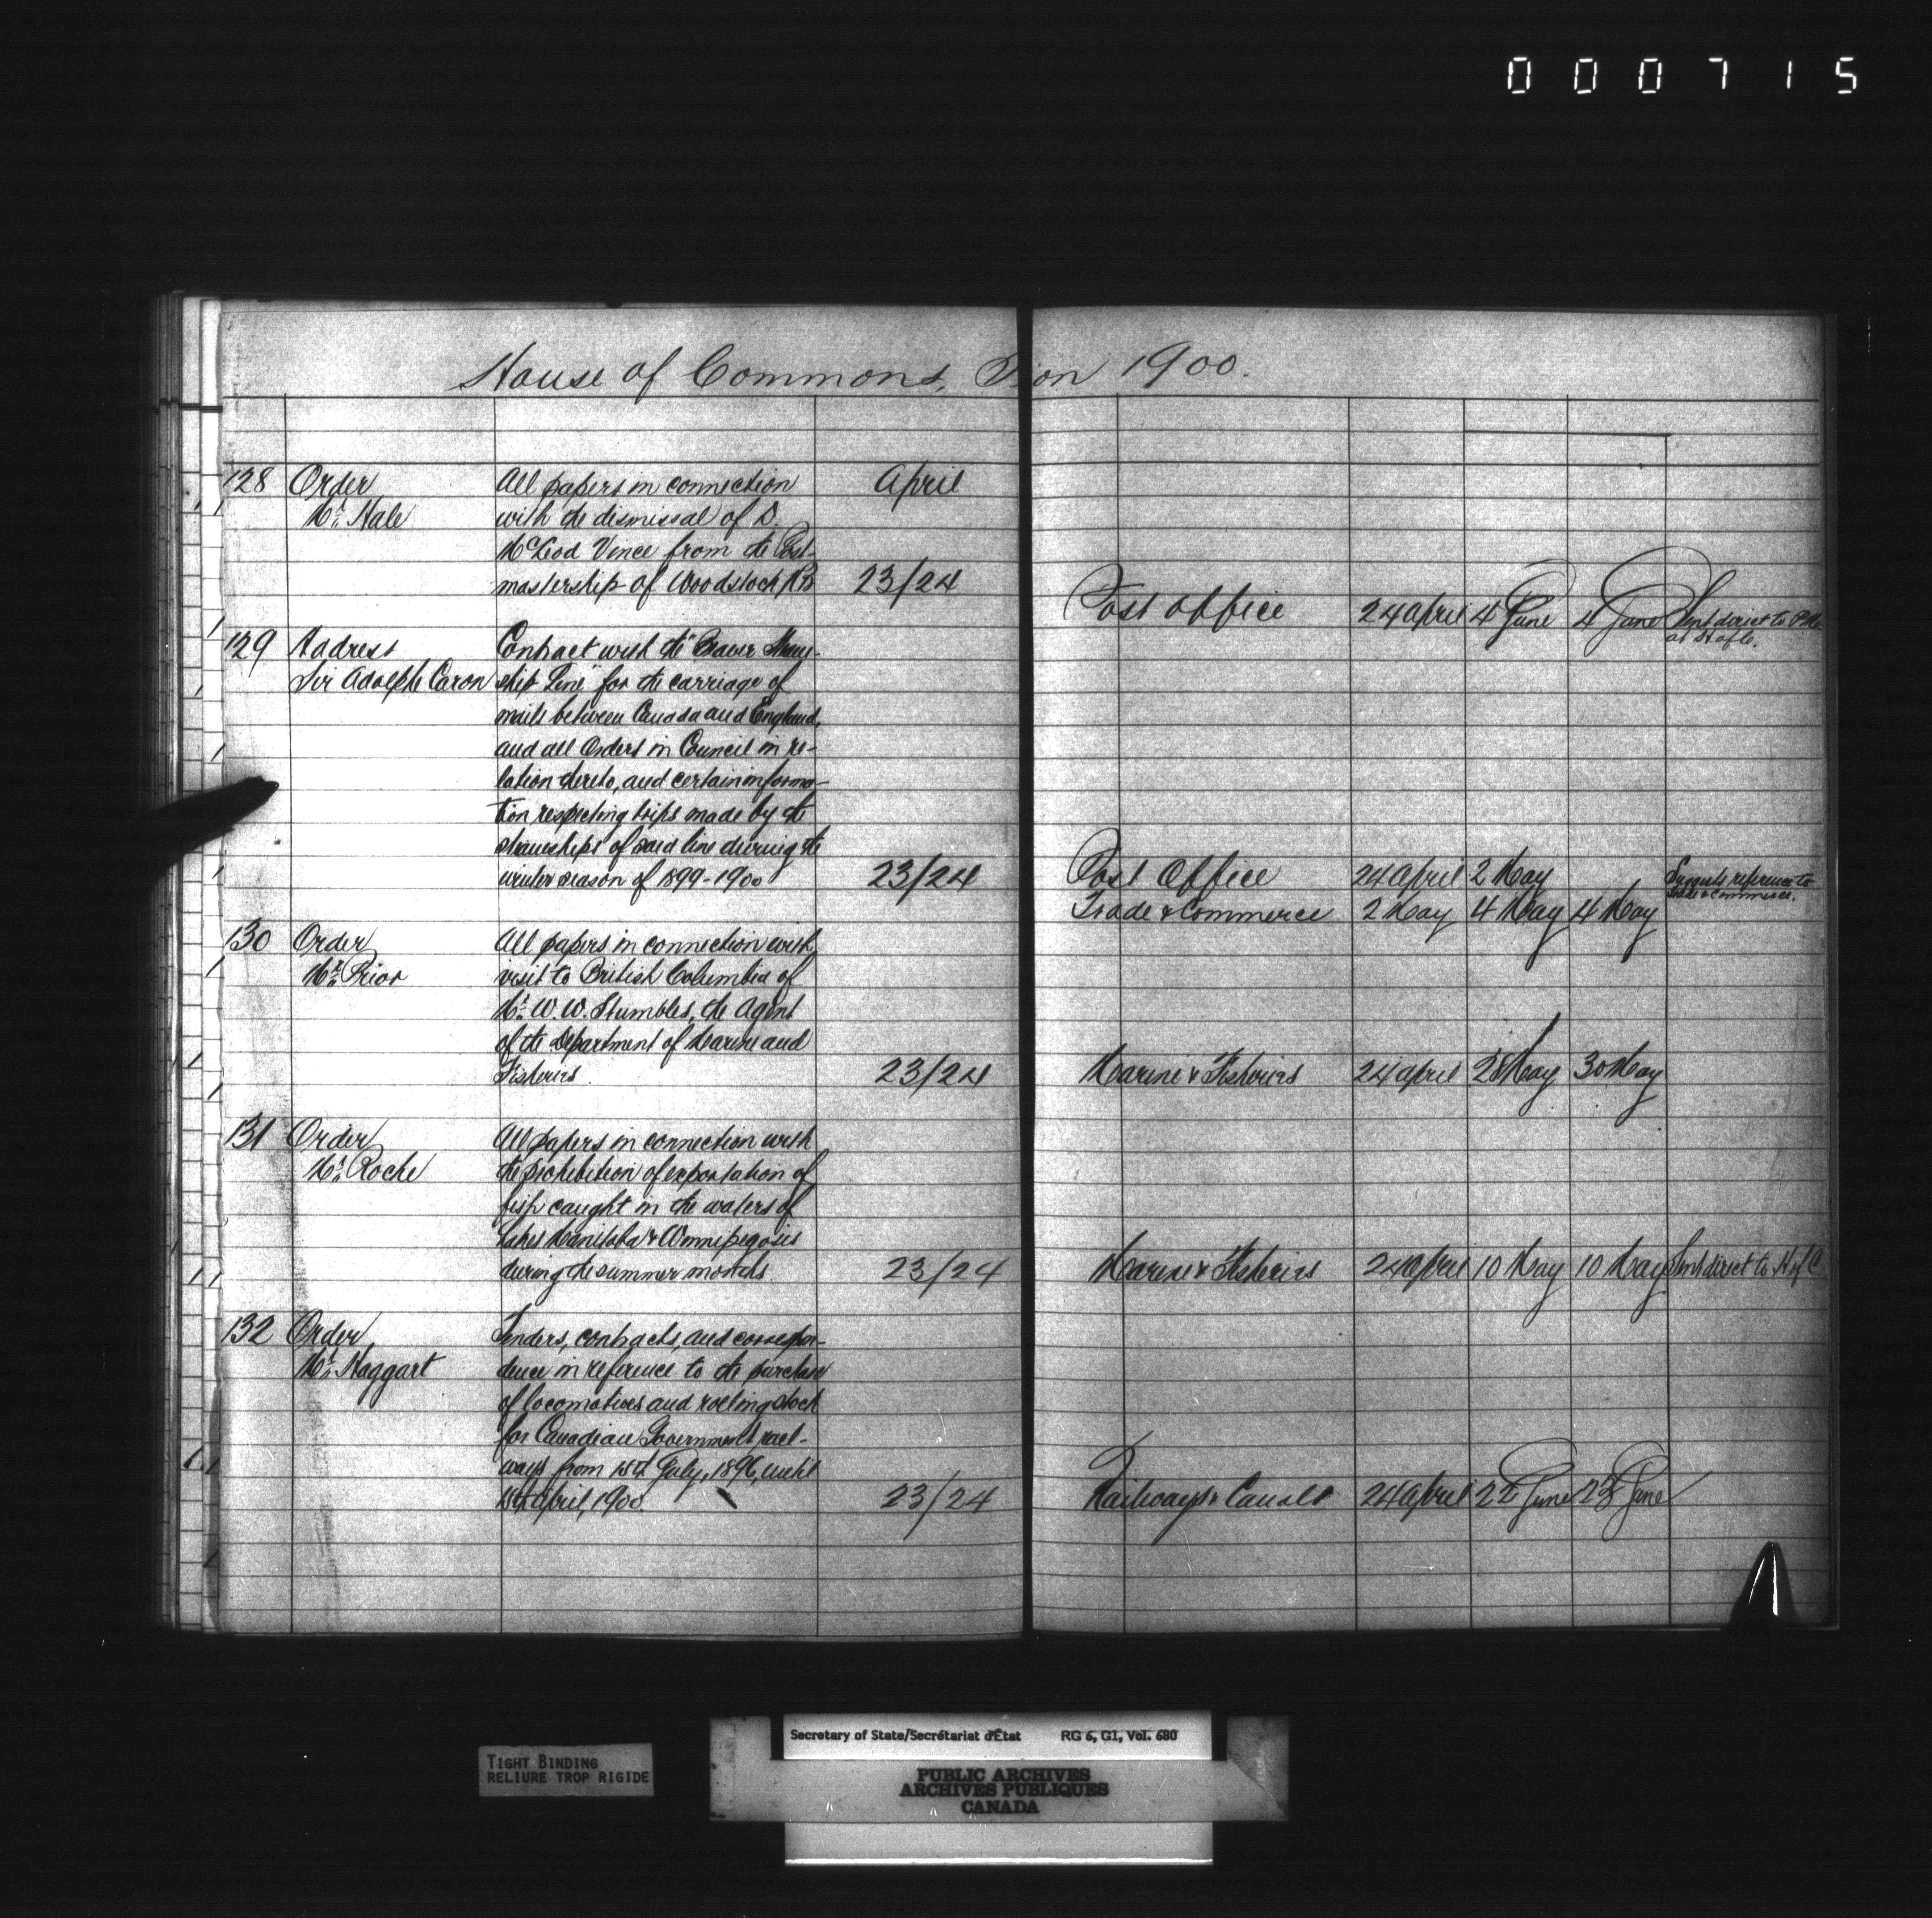 000715
House of Commons, S ion 1900.
128 Order All papers in connection April
Mr. Hale with the dismissal of D.
McLeod Vince from the Post-
mastership of Woodstock NB 23/24
Post Office 24 April 4 June 4 June Sent direct to
129 Address Contract with the "Beaver Steam-
Sir Adolphe Caron ship Line" for the carriage of
mails between Canada and England,
and all Orders in Council in re-
lation thereto, and certain informa-
tion respecting trips made by the
steamships of said line during the
winter season of 1899-1900 23/24 Post Office 24 April 2 May Suggests reference to
Trade & Commerce.
Trade & Commerce 2 May 4 May 4 May
130 Order All papers in connection with
Mr. Prior visit to British Columbia of
Mr. W. W. Stumbles, the Agent
of the Department of Marine and
Fisheries. 23/24 Marine & Fisheries 24 April 28 May 30 May
131 Order All papers in connection with
Mr. Roche the prohibition of exportation of
fish caught in the waters of
Lakes Manitoba & Winnipegosis
during the summer months. 23/24 Marine & Fisheries 24 April 10 May 10 May Sent direct to H of C.
132 Order Tenders, contracts, and correspon-
Mr. Haggart dence in reference to the purchase
of locomotives and rolling stock
for Canadian Government rail-
ways from 1st July, 1896, until
1st April, 1900. 23/24 Railways & Canals 24 April 22 June 23 June
Secretary of State/Secrétariat d'État RG 6, G1, Vol. 680
TIGHT BINDING
RELIURE TROP RIGIDE
PUBLIC ARCHIVES
ARCHIVES PUBLIQUES
CANADA